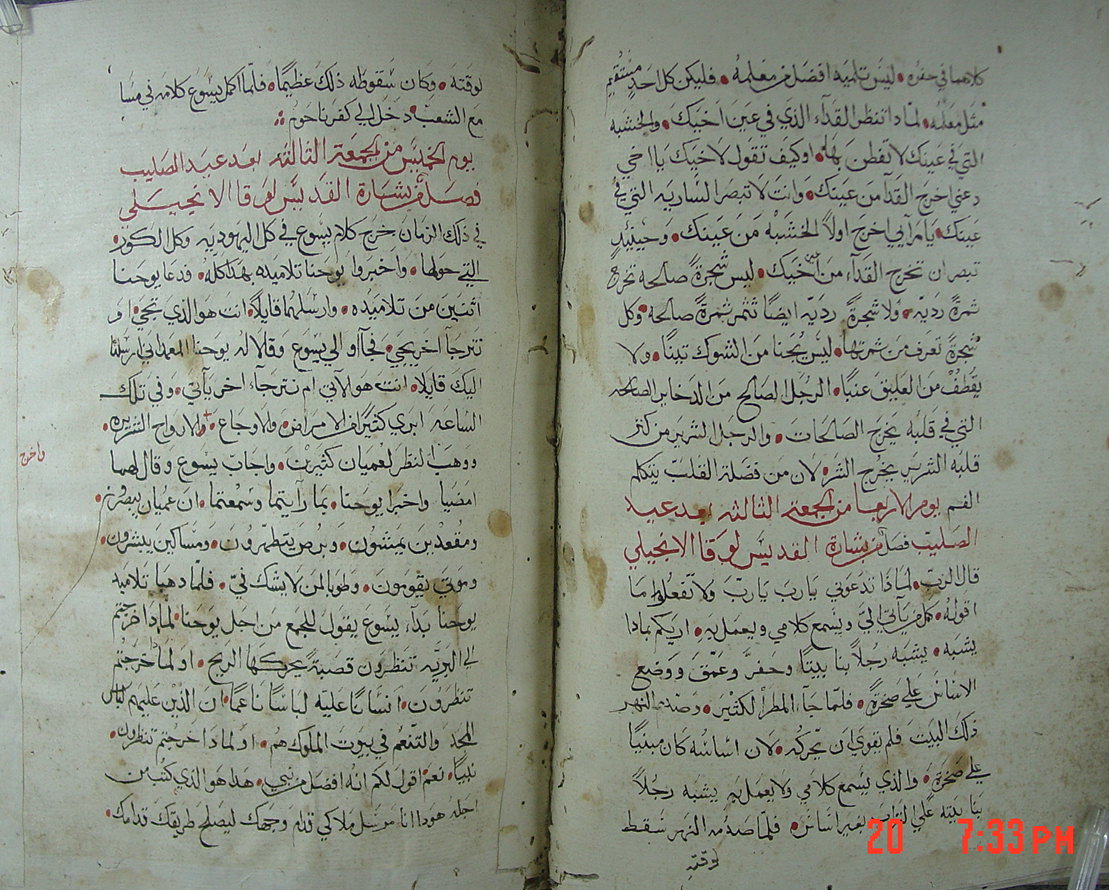 كلاهما في حفره • ليس تلميد افضل من معلمه • فليكن كل احد مستقيم
مثل معلمه • لماذا تنظر القدآء الذي في عين اخيك • والخشبه
التي في عينك لا تفطن بها • او كيف تقول لاخيك يا اخي
دعني اخرج القدآ من عينك • وانت لا تبصر الساريه التي في
عينك • يا مرآيي اخرج اولاً الخشبه من عينك • وحينيدٍ
تبصر ان تخرج القدآء من عين اخيك • ليس شجرةً صالحه تخرج
ثمرةً رديه • ولا شجرةً رديّه ايضاً تثمر ثمرةً صالحه • وكل
شجرةً تعرف من ثمرتها • ليس يجنا من الشوك تيناً • ولا
يقطف من العليق عنباً • الرجل الصالح من الدخاير الصالحه
التي في قلبه يخرج الصالحات • والرجل الشرير من كنز
قلبه الشرير يخرج الشر • لان من فضلة القلب يتكلم
الفم يوم الاربعا من الجمعه الثالثه بعد عيد
الصليب فصل من بشارة القديس لوقا الانجيلي
قال الرب • لماذا تدعوني يا رب يا ربّ ولا تفعلوا ما
اقوله • كل من ياتي اليّ ويسمع كلامي ويعمل به • اريكم بماذا
يشبه • يشبه رجلاً بنا بيتاً وحفر وعمّق ووضع
الاساس على صخرةً • فلما جآء المطر الكثير • وصدم النهر
ذلك البيت فلم يقوى ان يحركه • لان اساسه كان مبنياً
على صخرةً • والذي يسمع كلامي ولا يعمل به يشبه رجلاً
بنا بيته على التراب بغير اساس • فلما صدمه النهر سقط
لوقته
لوقته • وكان سقوطه ذلك عظيماً • فلما اكمل يسوع كلامه في مسا
مع الشعب • دخل الى كفرناحوم
يوم الخميس من الجمعه الثالثه بعد عيد الصليب
فصل من بشارة القديس لوقا الانجيلي
في ذلك الزمان خرج كلام يسوع في كل اليهوديه وكل الكور
التي حولها • واخبروا يوحنا تلاميده بهذا كله • فدعا يوحنا
اثنين من تلاميده • وارسلهما قايلاً • انت هو الذي تجي • او
نترجا اخر يجي • فجآءو الى يسوع وقالا له يوحنا المعمداني ارسلنا
اليك قايلاً • انت هو الاتي ام نترجآء اخر ياتي • وفي تلك
الساعه ابرى كثير من الامراض • والاوجاع • والارواح الشريره •
واخرج
ووهب النظر لعميان كثيرين • واجاب يسوع وقال لهما
امضيا واخبرا يوحنا • بما رايتما وسمعتما • ان عميان يبصرون •
ومقعدين يمشون • وبرص يتطهرون • ومساكين يبشرون •
وموتى يقومون • وطوبا لمن لا يشك فيّ • فلما دهبا تلاميد
يوحنا بداء يسوع يقول للجمع من اجل يوحنا • لماذا خرجتم
الى البريه تنظرون قصبةً يحركها الريح • او لماذا خرجتم
تنظرون • انساناً عليه لباساً ناعماً • ان الذين عليهم لباس
المجد والتنعم في بيوت الملوك هم • او لماذا خرجتم تنظرون •
نبياً • نعم اقول لكم انه افضل من نبي • هذا هو الذي كتب من
اجله هودا انا مرسل ملاكي قدام وجهك ليصلح طريقك قدامك •
20 7:33 PM